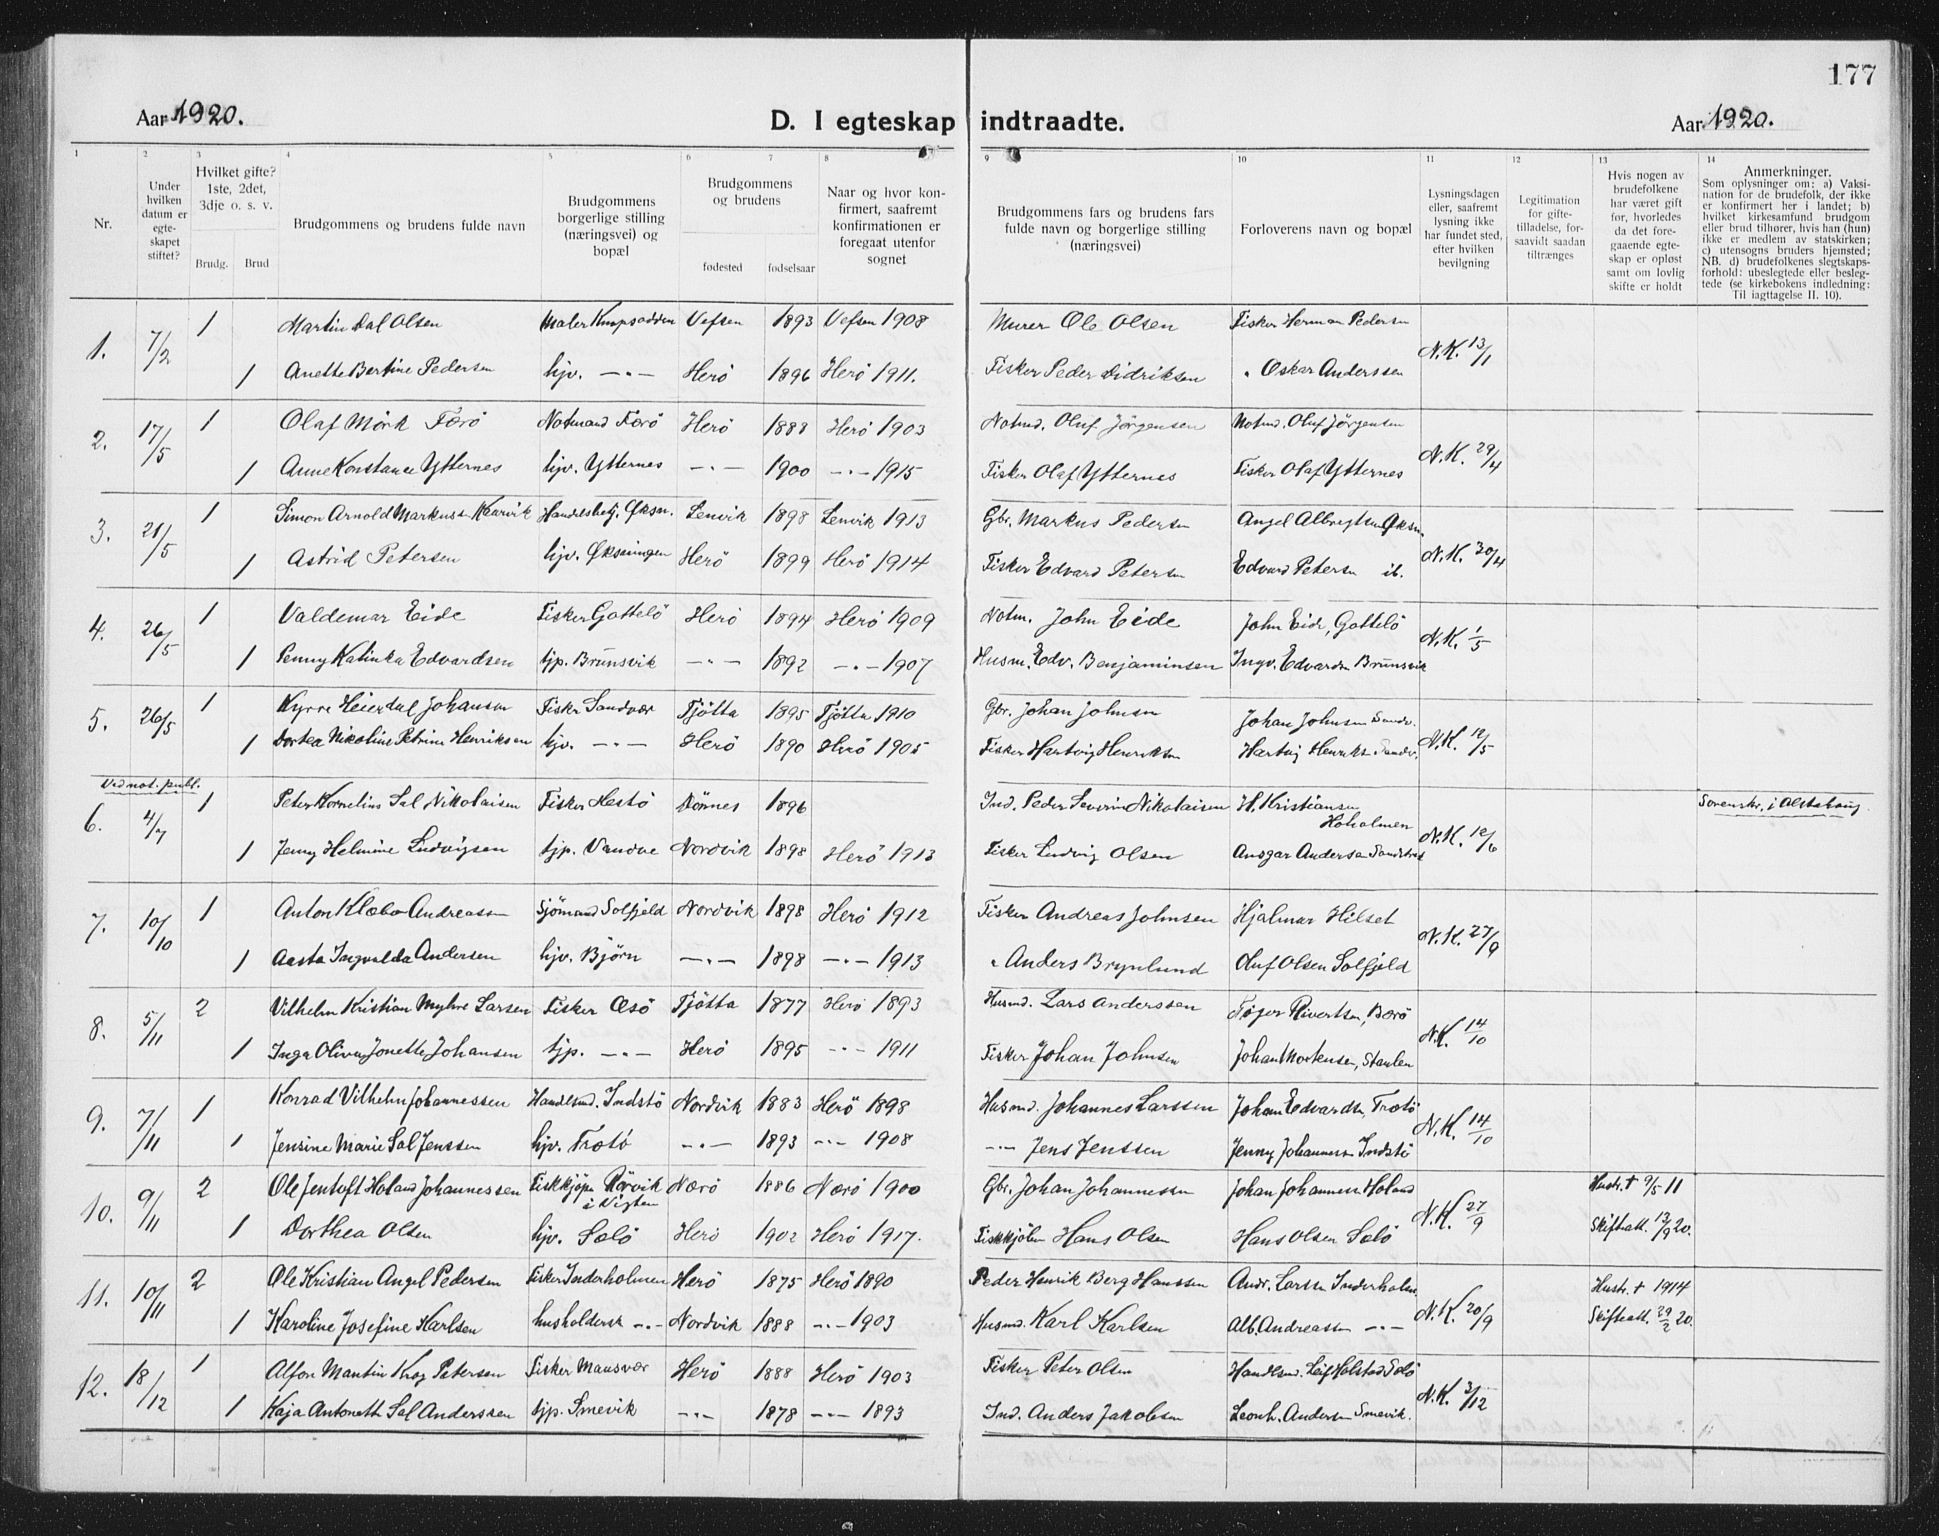 177
Aar 1920. D. I egteskap indtraadte. Aar 1920.
1 2 3 4 5 6 7 8 9 10 11 12 13 14
Nr.
Under hvilken datum er egte-skapet stiftet?
Hvilket gifte? 1ste, 2det, 3dje o. s. v.
Brudg. Brud
Brudgommens og brudens fulde navn
Brudgommens borgerlige stilling (næringsvei) og bopæl
Brudgommens og brudens
fødested fødselsaar
Naar og hvor kon-firmert, saafremt konfirmationen er foregaat utenfor sognet
Brudgommens fars og brudens fars fulde navn og borgerlige stilling (næringsvei)
Forloverens navn og bopæl
Lysningsdagen eller, saafremt lysning ikke har fundet sted, efter hvilken bevilgning
Legitimation for gifte-tilladelse, for-saavidt saadan tiltrænges
Hvis nogen av brudefolkene har været gift før, hvorledes da det fore-gaaende egte-skap er opløst samt om lovlig skifte er holdt
Anmerkninger.
Som oplysninger om: a) Vaksi-nation for de brudefolk, der ikke er konfirmert her i landet; b) hvilket kirkesamfund brudgom eller brud tilhører, hvis han (hun) ikke er medlem av statskirken; c) utensogns bruders hjemsted; NB. d) brudefolkenes slegtskaps-forhold: ubeslegtede eller besleg-tede (se kirkebokens indledning: Til iagttagelse II. 10).
1. 7/2 1 Martin Dal Olsen Maler Vefsen 1893 Vefsen 1908 Murer Ole Olsen Fisker Herman Pedersen N.K. 13/1
1 Anette Bertine Pedersen hjv. -"- Herö 1896 Herö 1911. Fisker Peder Didriksen " Oskar Anderssen
2. 17/5 1 Olaf Mörk Færö Notmand Færö Herö 1888 Herö 1903 Notmd. Oluf Jörgensen Notmd. Oluf Jörgensen N.K. 29/4
1 Anne Konstance Ytternes hjv. Ytternes -"- 1900 -"- 1915 Fisker Olaf Ytternes Fisker Olaf Ytternes
3. 21/5 1 Simon Arnold Markussen Handelsbetj. Øksn. Lenvik 1898 Lenvik 1913 Gbr. Markus Pedersen Angel Albregtsen Øksn. N.K. 30/4
1 Astrid Petersen hjv. Øksningen Herö 1899 Herö 1914 Fisker Edvard Petersen Edvard Petersen ib.
4. 26/5 1 Valdemar Eide Fisker Gottelö Herö 1894 Herö 1909 Notm. John Eide John Eide, Gottelö N.K. 1/5
1 Penny Katinka Edvardsen tjp. Brunsvik -"- 1892 -"- 1907 Husm. Edv. Benjaminsen Ingv. Edvardsen Brunsvik
5. 26/5 1 Kyrre Heierdal Johansen Fisker Sandvær Tjötta 1895 Tjötta 1910 Gbr. Johan Johnsen Johan Johnsen Sandv. N.K. 12/5
1 Dortea Nikoline Petrine Henriksen hjv. -"- Herö 1890 Herö 1905 Fisker Hartvig Henriksen Hartvig Henriksen Sandv.
Ved not. publ.
6. 4/7 1 Peter Kornelius Sal Nikolaisen Fisker Hestö Dönnes 1896 Ind. Peder Severin Nikolaisen H. Kristiansen Hoholmen N.K. 12/6 Sorenskr. i Alstahaug
1 Jenny Helmine Ludvigsen tjp. Vandve Nordvik 1898 Herö 1913 Fisker Ludvig Olsen Ansgar Andersen
7. 10/10 1 Anton Klæbo Andreassen Sjömand Solfjeld Nordvik 1898 Herö 1912 Fisker Andreas Johnsen Hjalmar Hilset N.K. 27/9
1 Aasta Ingvalda Andersen hjv. Björn -"- 1898 -"- 1913 " Anders Brynlund Oluf Olsen Solfjeld
8. 5/11 2 Vilhelm Kristian Myhre Larsen Fisker Æsö Tjötta 1877 Herö 1893 Husmd. Lars Anderssen Rivertsen, Bærö N.K. 14/10
1 Inga Olivia Jonette Johansen tjp. -"- Herö 1895 -"- 1911 Fisker Johan Johnsen Johan Mortensen, Staulen
9. 7/11 1 Konrad Vilhelm Johannessen Handlsmd. Indstö Nordvik 1883 Herö 1898 Husmd. Johannes Larssen Johan Edvardsen, Trætö N.K. 14/10
1 Jensine Marie Sal Jenssen hjv. Trætö -"- 1893 -"- 1908 -"- Jens Jenssen Jenny Johannessen Indstö
10. 9/11 2 Ole Jentoft Holand Johannessen Fiskkjöper Rörvik i Vigten Nærö 1886 Nærö 1900 Gbr. Johan Johannessen Johan Johannessen Holand N.K. 27/9 Hustr. † 9/5 11
1 Dorthea Olsen hjv. Solö Herö 1902 Herö 1917. Fiskkjöber Hans Olsen Hans Olsen Solö Skifteatt. 13/9 20.
11. 10/11 2 Ole Kristian Angel Pedersen Fisker Inderholmen Herö 1875 Herö 1890 Peder Henrik Berg Hanssen Andr. Larsen Inderholm. N.K. 20/9 Hustr. † 1914
1 Karoline Josefine Karlsen husholdersk -"- Nordvik 1888 -"- 1903 Husmd. Karl Karlsen Alb. Andreassen -"- Skifteatt. 29/2 20.
12. 18/12 1 Alfon Mantin Krog Petersen Fisker Maasvær Herö 1888 Herö 1903 Fisker Peter Olsen Handlsmd. Leif Holstad Solö N.K. 3/12
1 Kaja Antonette Sal Anderssen tjp. Smevik -"- 1878 -"- 1893 Ind. Anders Jakobsen Leonh. Andersen Smevik.